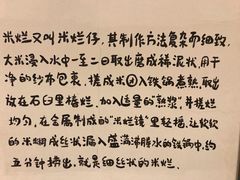 米烂又叫米烂仔，其制作方法复杂而细致，
大米浸入水中一至二日取出磨成稀泥状，用干
净的纱布包裹，搓成米团入铁锅煮熟，取出
放在石臼里捣烂，加入适量的“熟浆”，并搓烂
均匀，在金属制成的“米烂镂”里轻揉，让软软
的米糊成丝状漏入盛满沸腾水的铁锅中，约
五分钟捞出，就是细丝状的米烂。